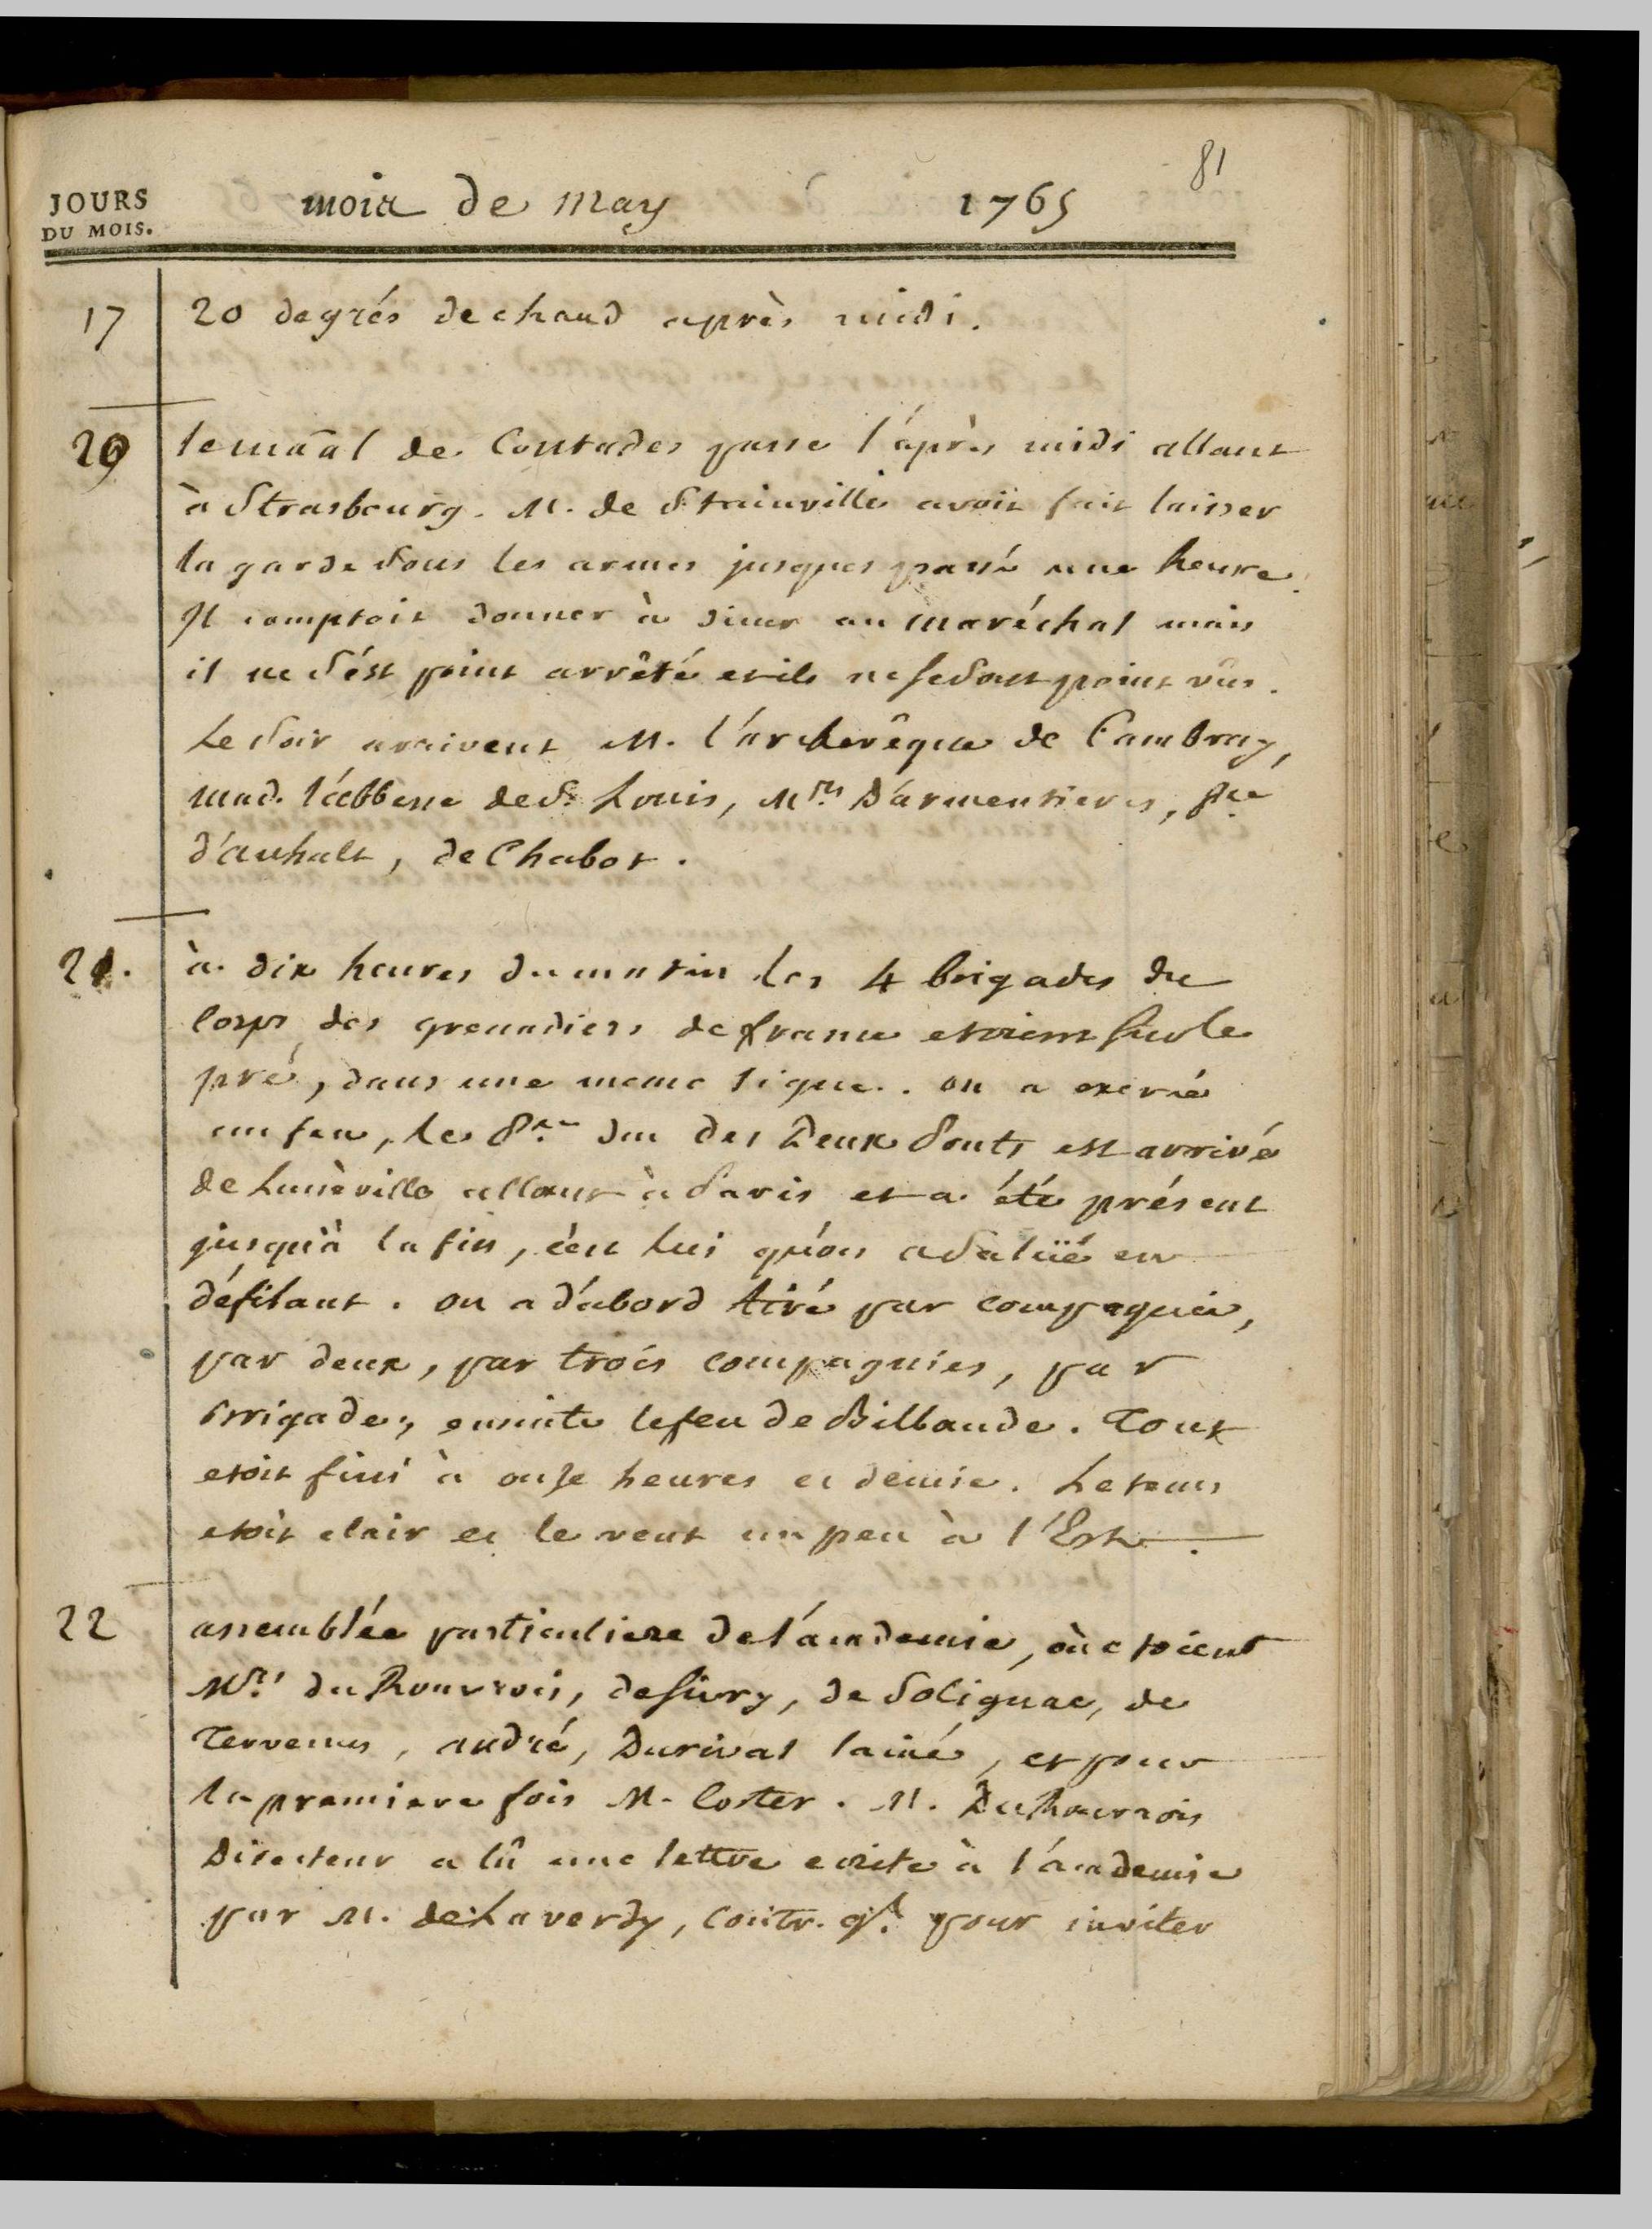 81
JOURS
DU MOIS.
mois de may 1765
17 20 degrés de chaud après midi.
20 le maal de Contades passe l'après midi allant
à Strasbourg. M. de Stainville avoit fait laisser
la garde sous les armes jusques passé une heure.
Il comptoit donner à diner au maréchal mais
il ne s'ést point arrêté et ils ne se sont point vûs.
Le soir arrivent M. l'archevêque de Cambray,
mad. l'abbesse de St Louis, Mrs D'armentieres, Pce
d'anhalt, de Chabot.
21. à dix heures du matin les 4 brigades du
corps des grenadiers de france etoient sur le
pré, dans une meme ligne. on a exercé
au feu, le Pce duc des Deux Ponts est arrivé
de Lunéville allant à Paris et a été présent
jusqu'à la fin, c'est lui qu'on a salüé en
défilant. on a d'abord tiré par compagnie,
par deux, par trois compagnies, par
brigade, ensuite le feu de Billbaude. Tout
etoit fini à onze heures et demie. Le tems
etoit clair et le vent un peu à l'Est.
22 assemblée particuliere de l'academie, où etoient
Mrs du Rouvrois, de Sivry, de Solignac, de
Tervenus, andré, Durival l'ainé, et pour
la premiere fois M. Coster. M. Du Rouvrois
Directeur a lû une lettre ecrite à l'academie
par M. de Laverdy, Contr. gl. pour inviter